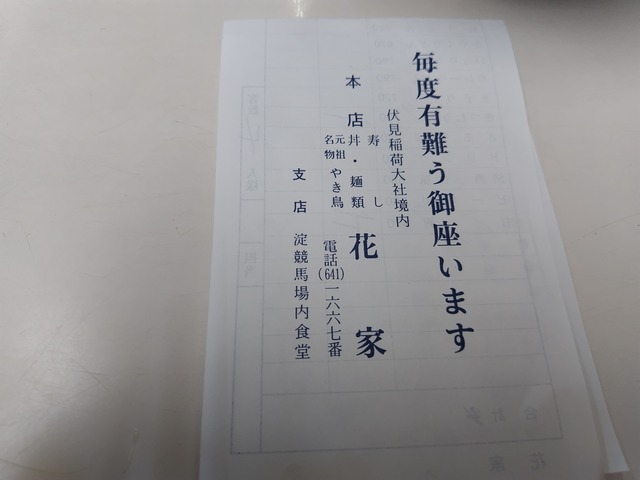 毎度有難う御座います
伏見稲荷大社境内
本店
寿し
丼・麺類
元祖
名物
やき鳥
花家
電話(641)一六六七番
支店
淀競馬場内食堂